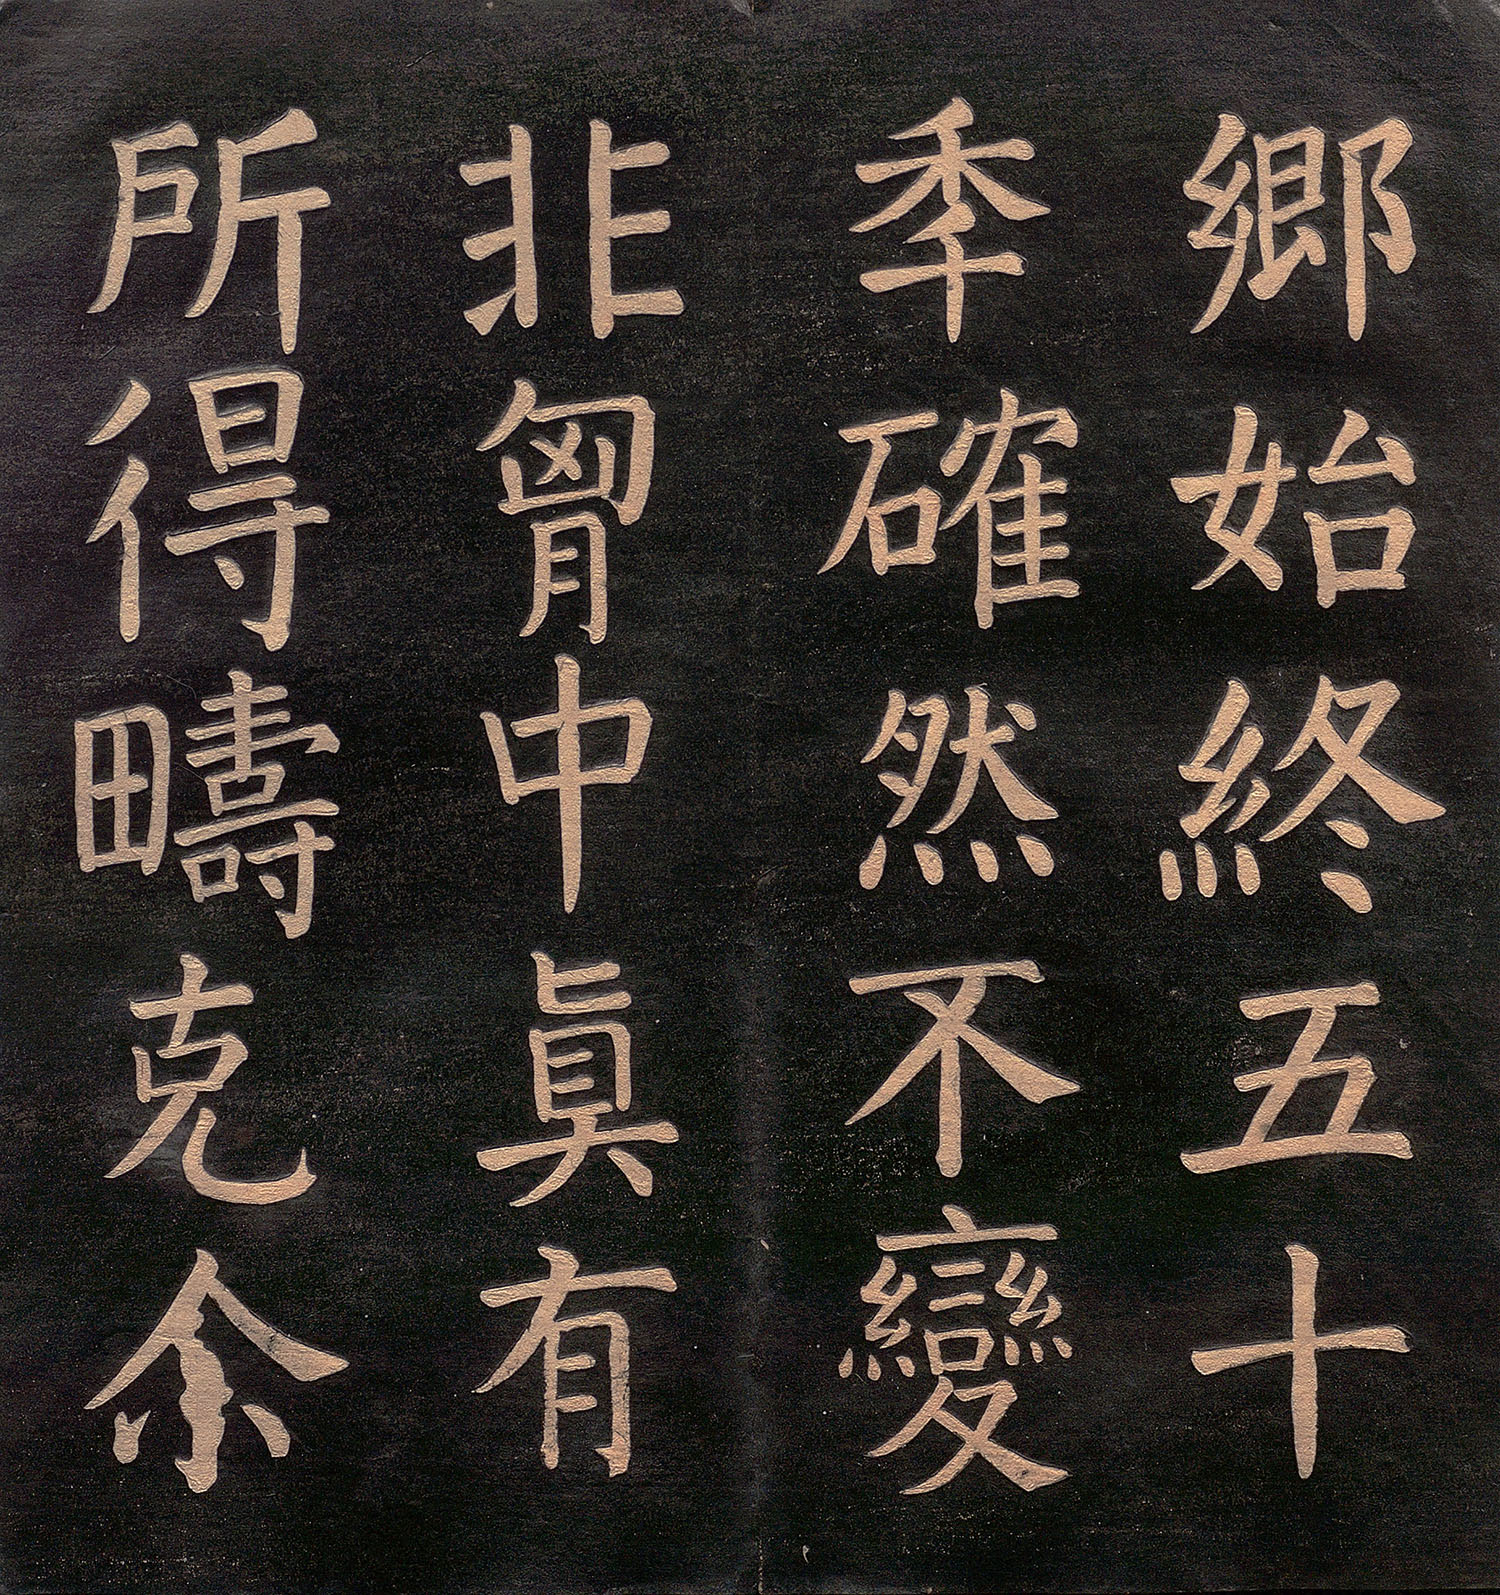 鄉始終五十
秊確然不變
非胷中眞有
所得疇克尒